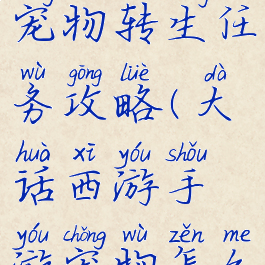 宠物转生任
wù gōng lüè dà
务攻略(大
huà xī yóu shǒu
话西游手
yóu chǒng wù zěn me
游宠物怎么